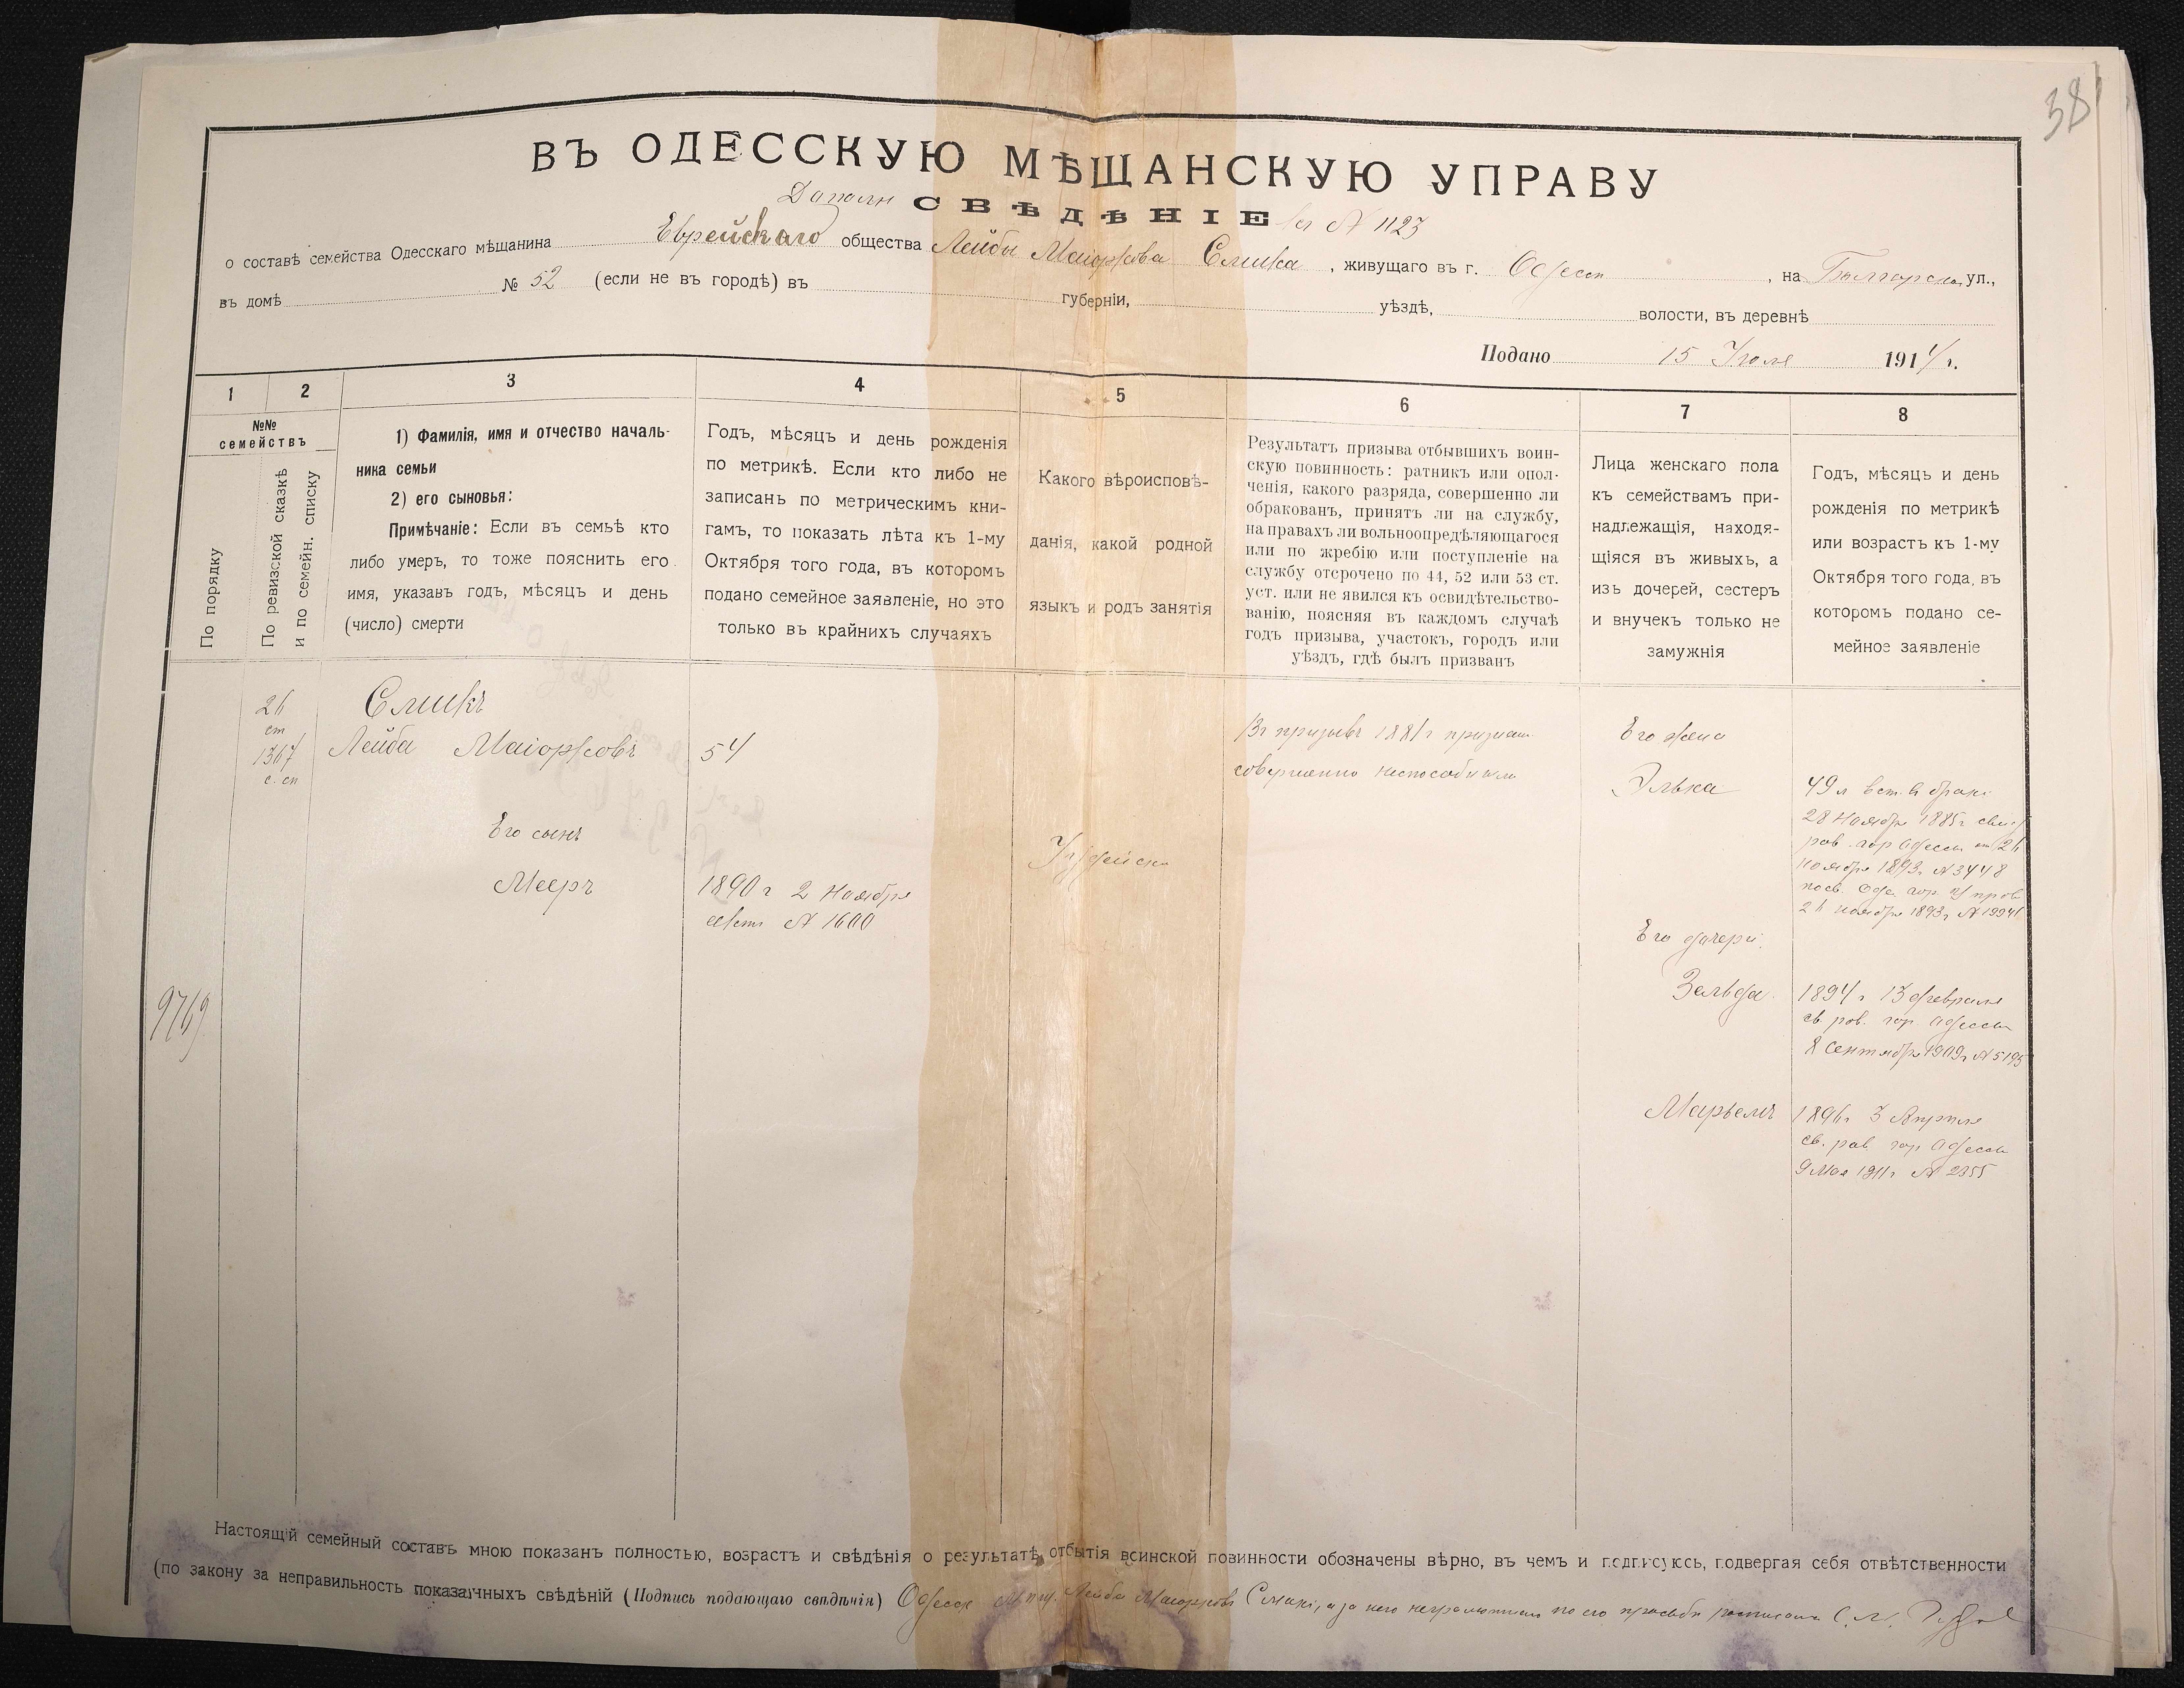 38
ВЪ ОДЕССКУЮ МѢЩАНСКУЮ УПРАВУ
Дополн СВѢДѢНІЕ № 1123
о составѣ семейства Одесскаго мѣщанина Еврейскаго общества Лейбы Маіоркова Слика, живущаго въ г. Одессѣ, на Болгарской ул.,
въ домѣ № 52 (если не въ городѣ) въ губерніи, уѣздѣ, волости, въ деревнѣ
Подано 15 Іюля 1914 г.
1 2 3 4 5 6 7 8
№№
семействъ
По порядку
По ревизской сказкѣ
и по семейн. списку
1) Фамилія, имя и отчество началь-
ника семьи
2) его сыновья:
Примѣчаніе: Если въ семьѣ кто
либо умеръ, то тоже пояснить его
имя, указавъ годъ, мѣсяцъ и день
(число) смерти
Годъ, мѣсяцъ и день рожденія
по метрикѣ. Если кто либо не
записанъ по метрическимъ кни-
гамъ, то показать лѣта къ 1-му
Октября того года, въ которомъ
подано семейное заявленіе, но это
только въ крайнихъ случаяхъ
Какого вѣроисповѣ-
данія, какой родной
языкъ и родъ занятія
Результатъ призыва отбывшихъ воин-
скую повинность: ратникъ или опол-
ченія, какого разряда, совершенно ли
обракованъ, принятъ ли на службу,
на правахъ ли вольноопредѣляющагося
или по жребію или поступленіе на
службу отсрочено по 44, 52 или 53 ст.
уст. или не явился къ освидѣтельство-
ванію, поясняя въ каждомъ случаѣ
годъ призыва, участокъ, городъ или
уѣздъ, гдѣ былъ призванъ
Лица женскаго пола
къ семействамъ при-
надлежащія, находя-
щіяся въ живыхъ, а
изъ дочерей, сестеръ
и внучекъ только не
замужнія
Годъ, мѣсяцъ и день
рожденія по метрикѣ
или возрастъ къ 1-му
Октября того года, въ
которомъ подано се-
мейное заявленіе
1367
с. сп
Сликъ
Лейба Маіорковъ
54
Его сынъ
Мееръ
1890 г 2 Ноября
№ 1600
Іудейск
Въ призывъ 1881 г признан
совершенно неспособнымъ
Его жена
Элька
49 л вст. въ бракъ
28 Ноября 1885 г свид
рав. гор Одессы от 26
ноября 1893 г № 3448
26 ноября 1893 г
Его дочери:
Зельда
1894 г 13 февраля
св. рав. гор. Одессы
8 Сентября 1909 г № 5195
Марьемъ
1896 г 3 Апреля
св. рав. гор Одессы
9 Мая 1911 г № 2355
9769
Настоящій семейный составъ мною показанъ полностью, возрастъ и свѣдѣнія о результатѣ отбытія воинской повинности обозначены вѣрно, въ чемъ и подписуюсь, подвергая себя отвѣтственности
(по закону за неправильность показанныхъ свѣдѣній (Подпись подающаго свѣдѣнія) Одесск мѣщ. Лейба Маіорковъ Сликъ, а за него неграмотнаго по его просьбѣ росписался